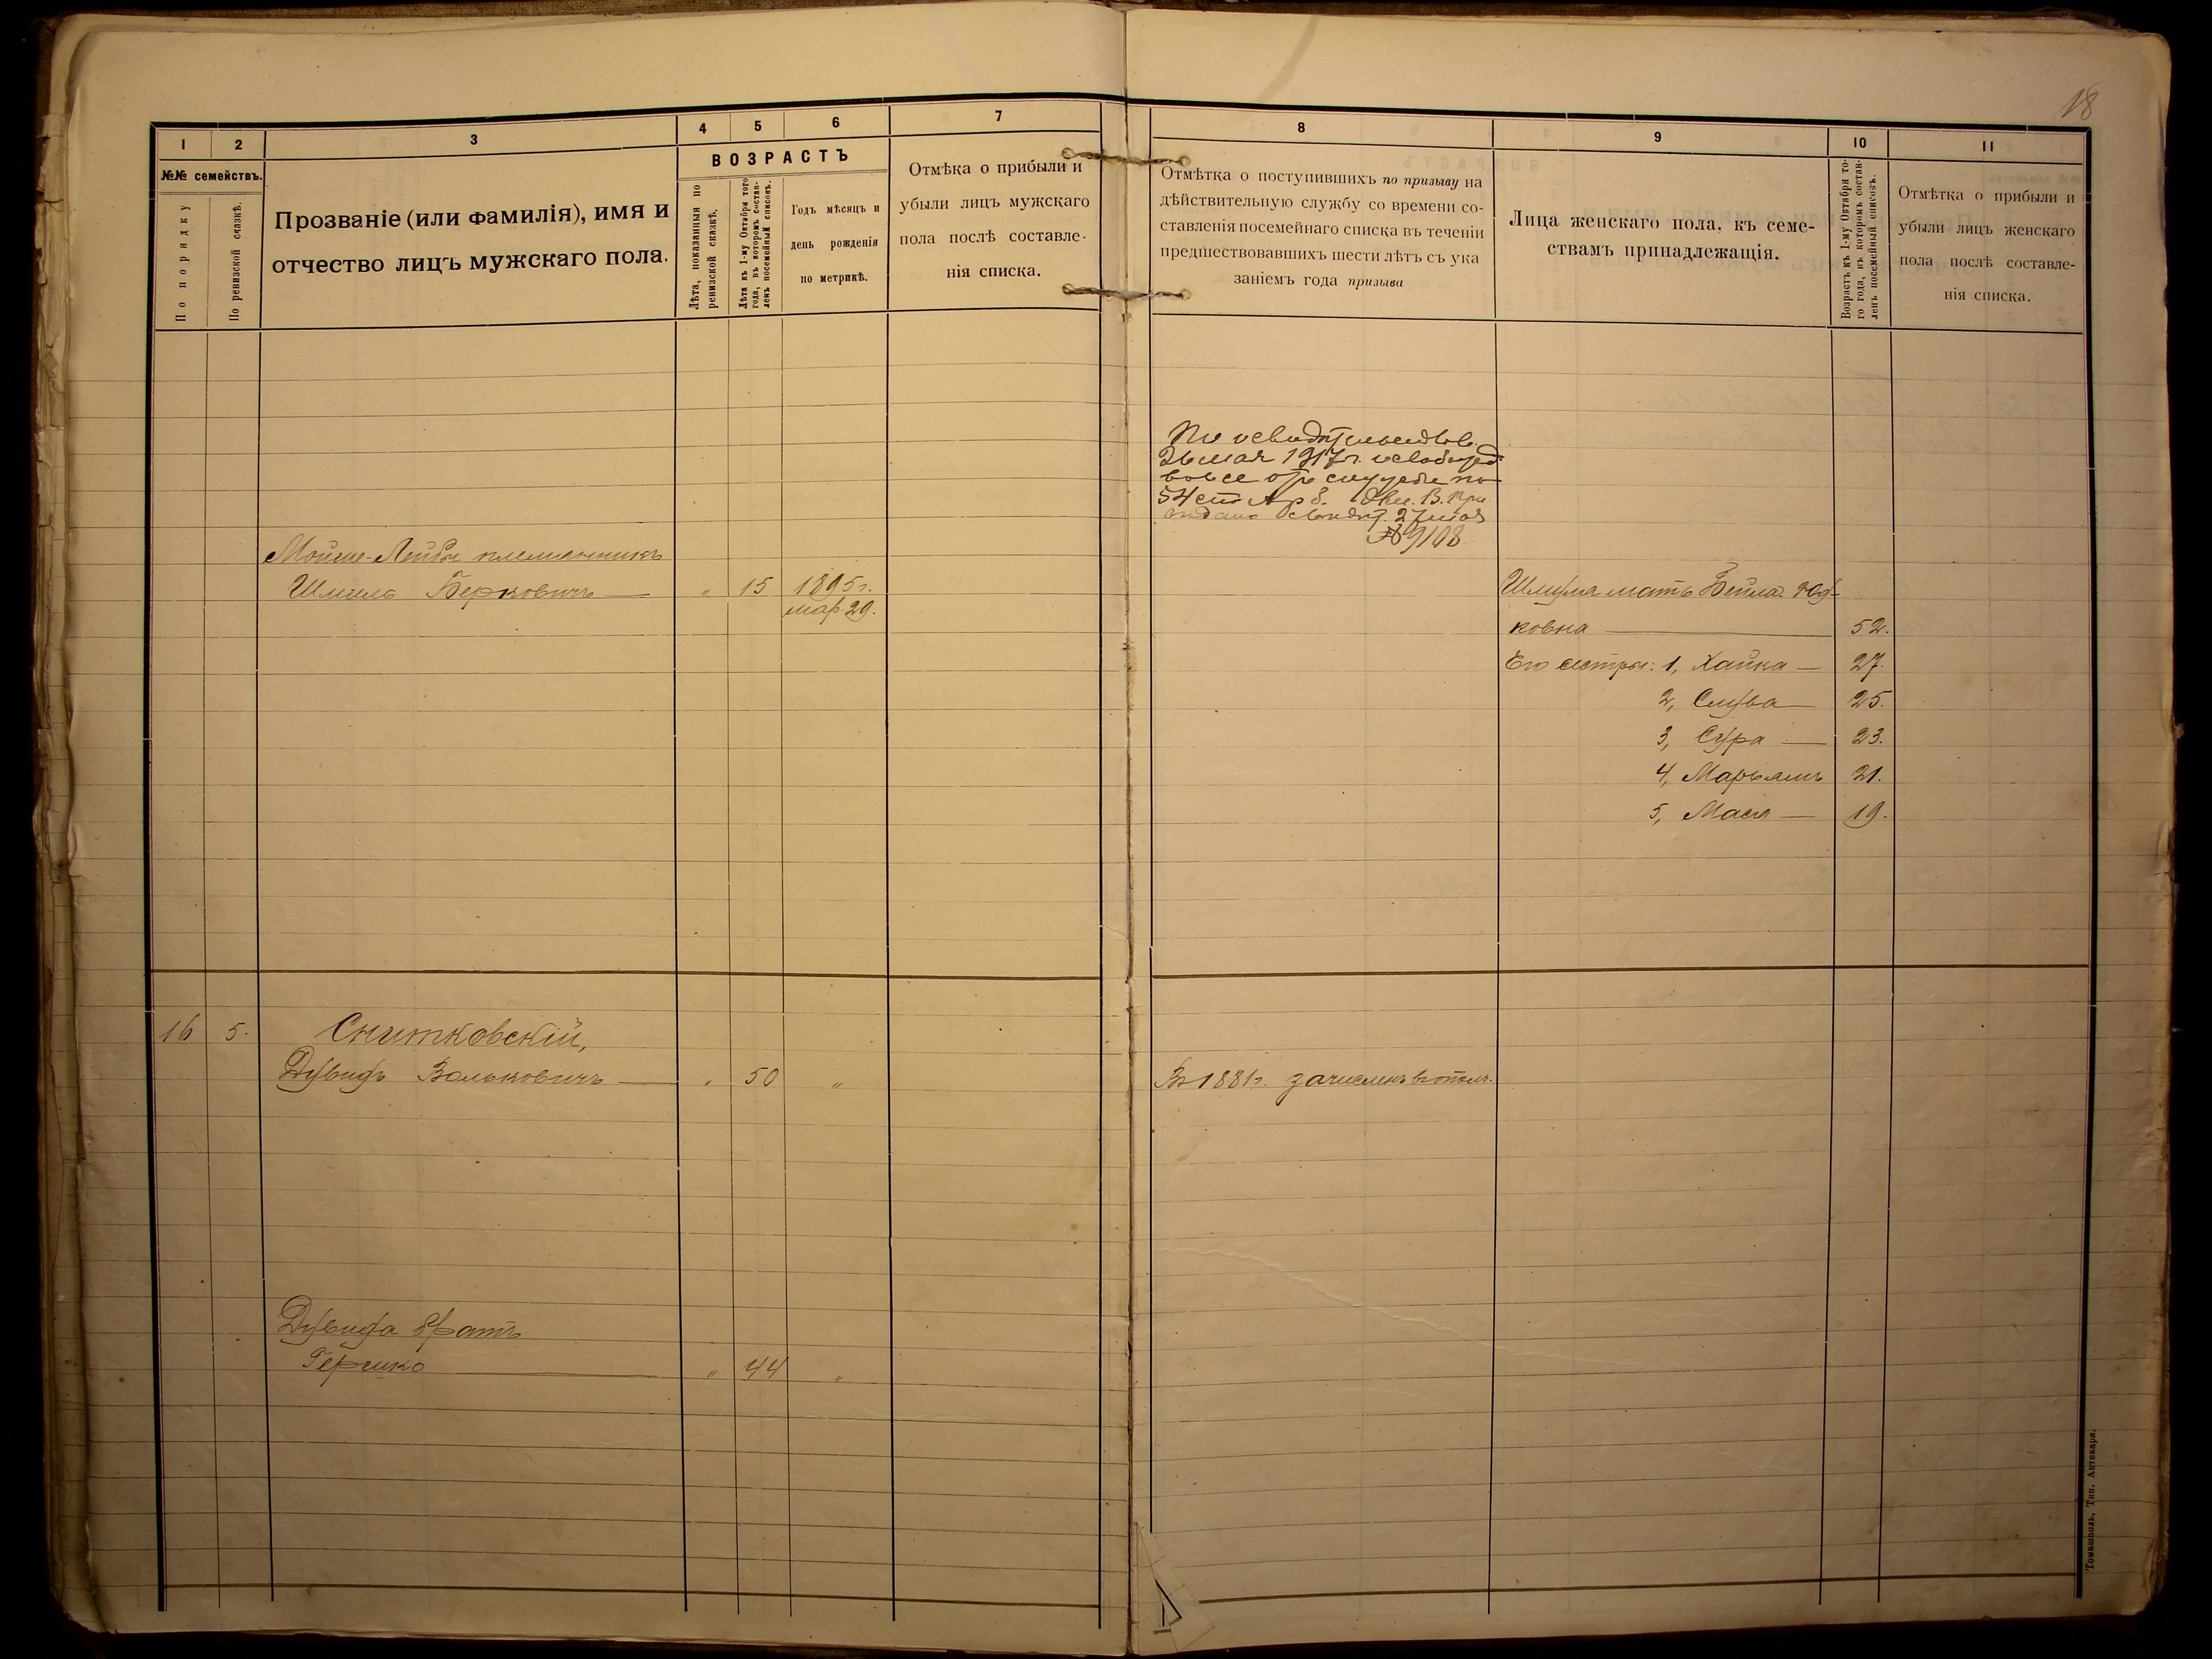 18
1
2
3
4
5
6
7
8
9
10
11
№№ семействъ.
По порядку
По ревизской сказкѣ.
Прозваніе (или фамилія), имя и
отчество лицъ мужскаго пола.
ВОЗРАСТЪ
Лѣта, показанныя по
ревизской сказкѣ.
Лѣта къ 1-му Октября того
года, въ которомъ состав-
ленъ посемейный списокъ.
Годъ мѣсяцъ и
день рожденія
по метрикѣ.
Отмѣка о прибыли и
убыли лицъ мужскаго
пола послѣ составле-
нія списка.
Отмѣтка о поступившихъ по призыву на
дѣйствительную службу со времени со-
ставленія посемейнаго списка въ теченіи
предшествовавшихъ шести лѣтъ съ ука
заніемъ года призыва
Лица женскаго пола, къ семе-
ствамъ принадлежащія.
Возрастъ къ 1-му Октября то-
го года, въ которомъ состав-
ленъ посемейный списокъ.
Отмѣтка о прибыли и
убыли лицъ женскаго
пола послѣ составле-
нія списка.
По освидѣтельствов.
26 мая 1917 г. освобожд
вовсе отъ службы по
54 ст. В. при
27 мая
№ 9108
Мойше-Лейбы племянникъ
Шмиль Берковичъ — " 15 1895 г.
мар. 29.
мать Бейла
ковна — 52.
Его сестры: 1, Хайка — 27.
2, Слува — 25.
3, Сура — 23.
4, Марьямъ 21.
5, Мася — 19.
16 5. Снитковскій,
Дувидъ Вольковичъ — " 50 "
Въ 1881 г. зачисленъ въ ополч.
Дувида братъ
Гершко — " 44 "
Томашполь, Тип. Аптекаря.